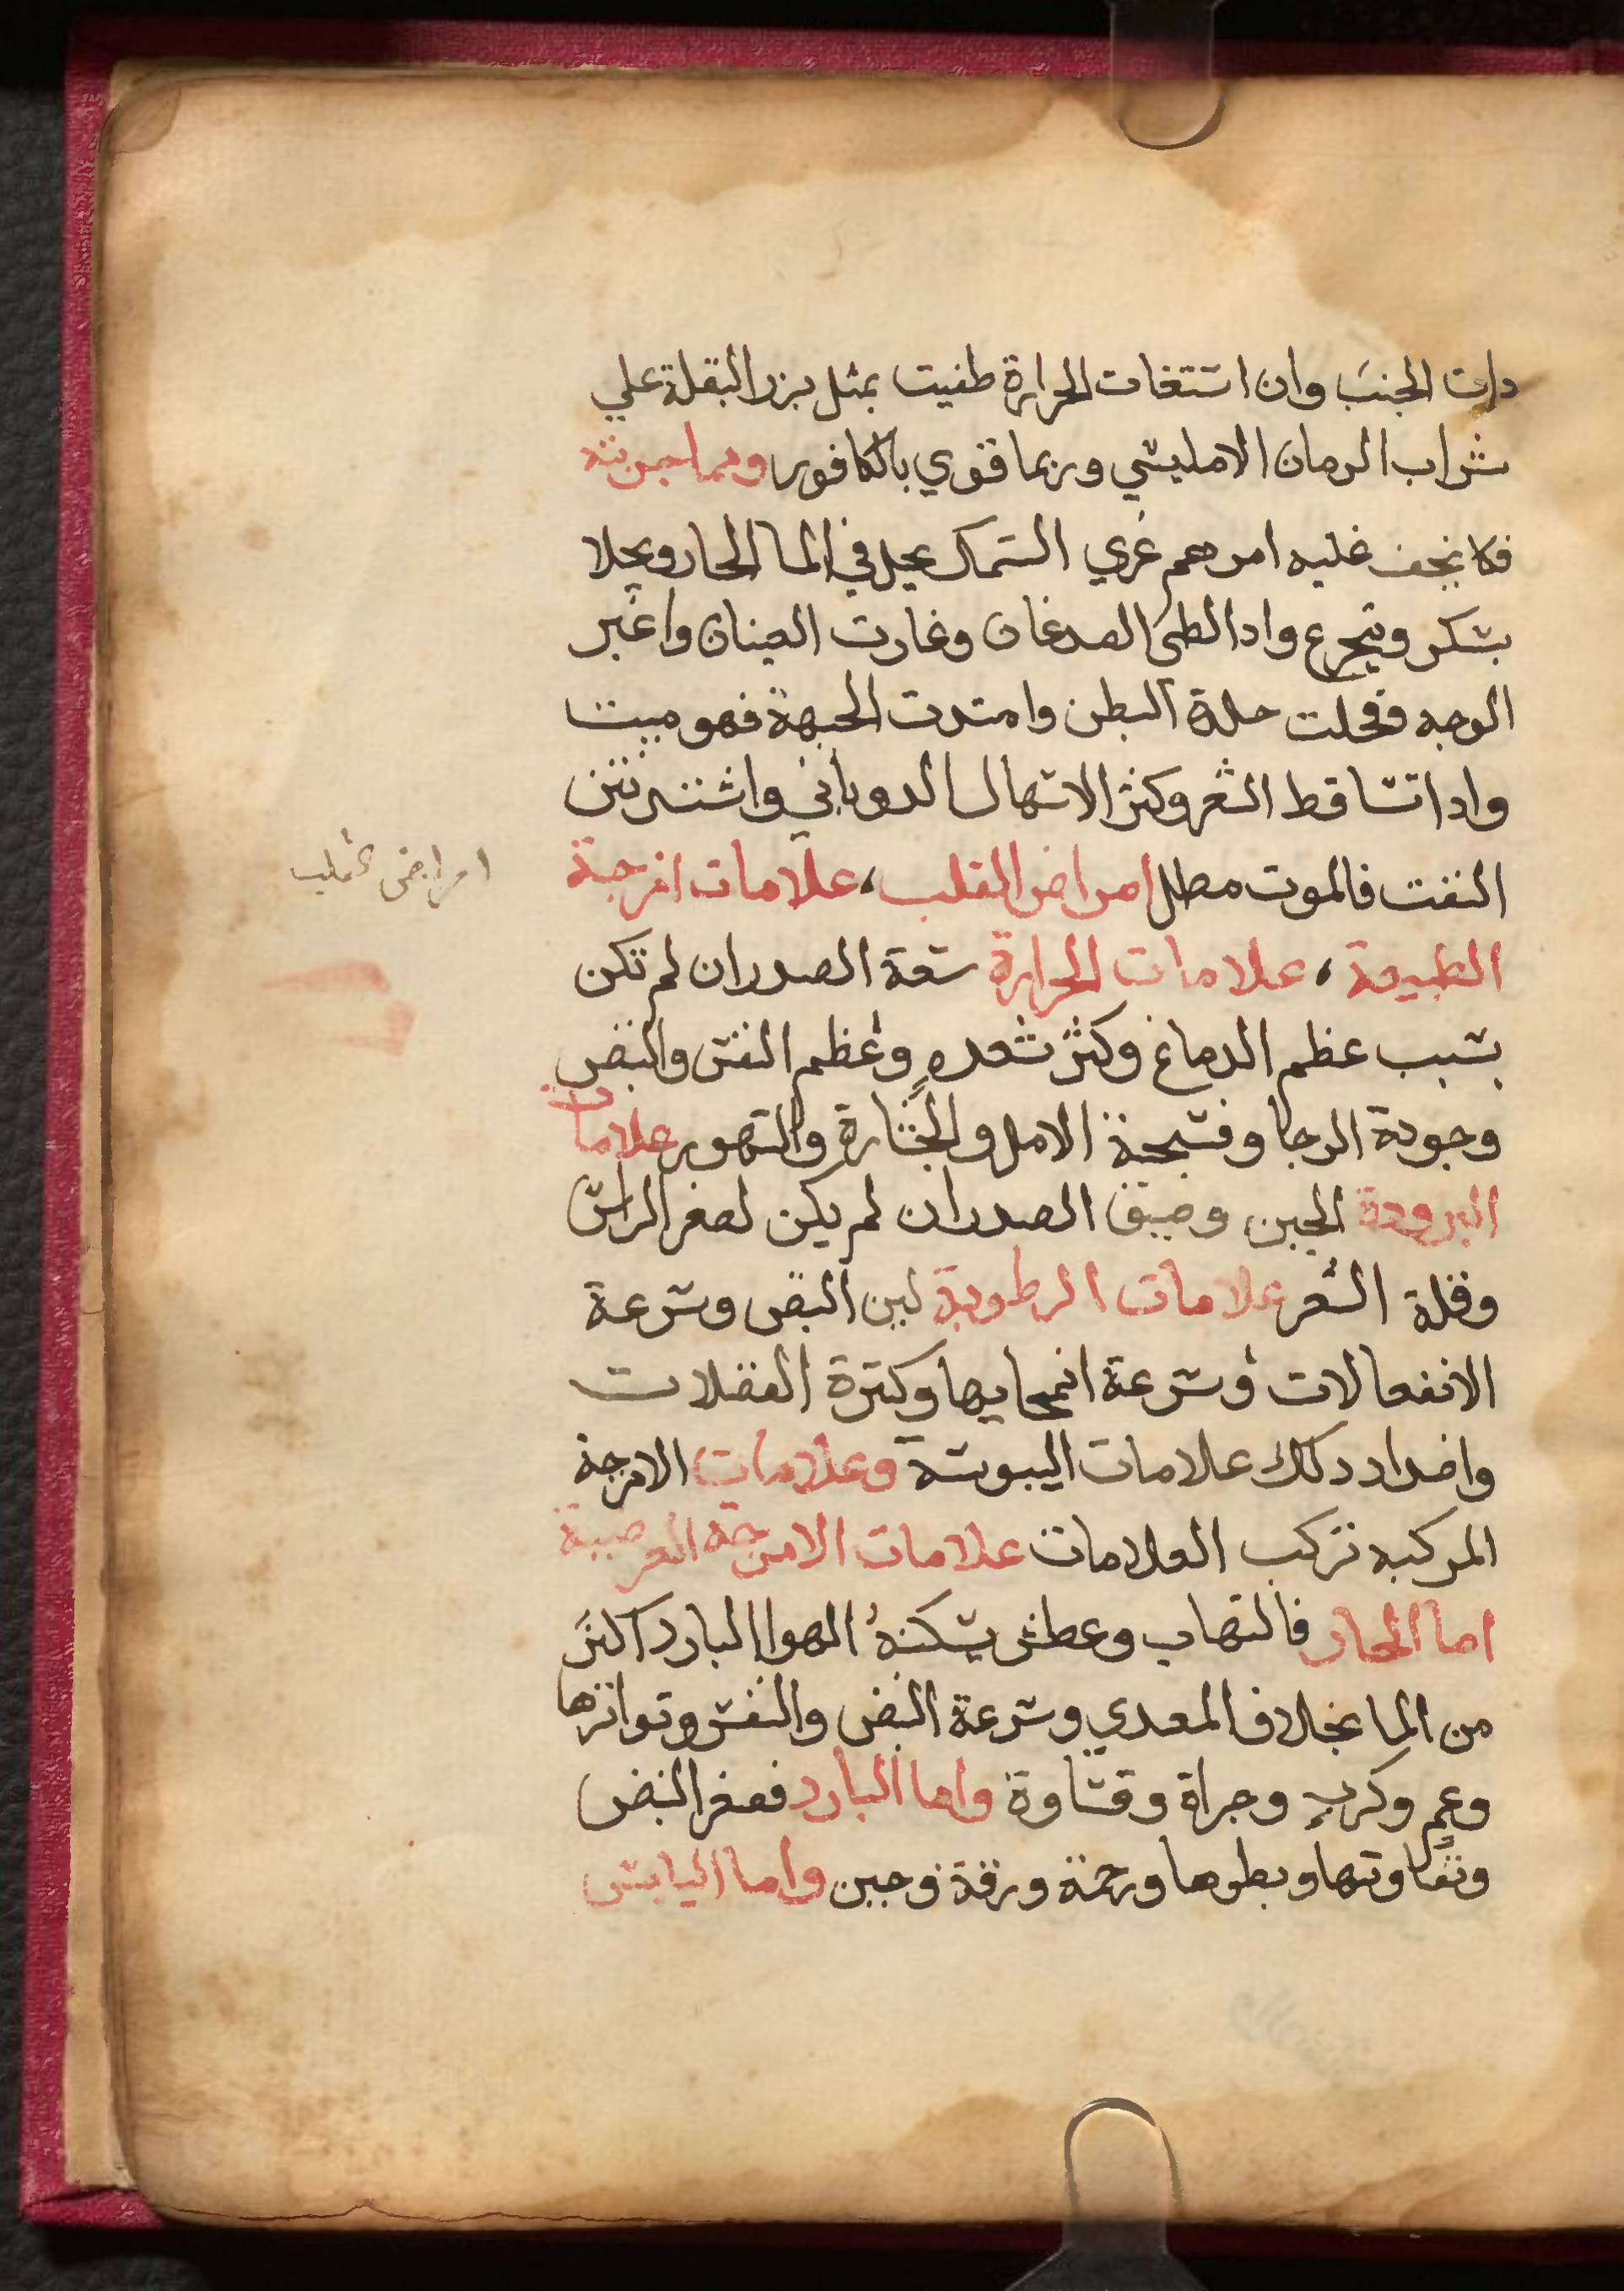 دات الجنب وان استغات الحرارة طفيت بمثل بزر البقلة علي
شراب الرمان الامليسي وربما قوي بالكافور ومما جربته
فلا نجف عليه امرهم غري السمك يحل في الما الحار ويحلا
بسكر ويتجرع وادا لطى الصدغان وغارت العينان واغبر
الوجه وقحلت جلدة البطن وامتدت الجبهة فهو ميت
وادا تساقط الشعر وكثر الاسهال الدوباني واشتد نتن
النفث فالموت مطل امراض القلب، علامات امزجة
امراض القلب
الطبيعة، علامات الحرارة سعة الصدر ان لم تكن
بسبب عظم الدماغ وكثر شعره وعظم النفس والنبض
وجودة الرجا وفسحة الامل والجسارة والتهور علامات
البرودة الجبن وضيق الصدر ان لم يكن لصغر الراس
وقلة الشعر علامات الرطوبة لين النبض وسرعة
الانفعالات وسرعة انمحايها وكثرة الفضلات
واضداد دلك علامات اليبوسة وعلامات الامزجة
المركبه تركب العلامات علامات الامزجة العرضية
اما الحار فالتهاب وعطش يسكنه الهوا البارد اكثر
من الما بخلاف المعدي وسرعة النبض والنفس وتواترها
وغم وكرب وجراة وقساوة واما البارد فصغر النبض
وتفاوتها وبطوها ورحمة ورقة وجبن واما اليابس